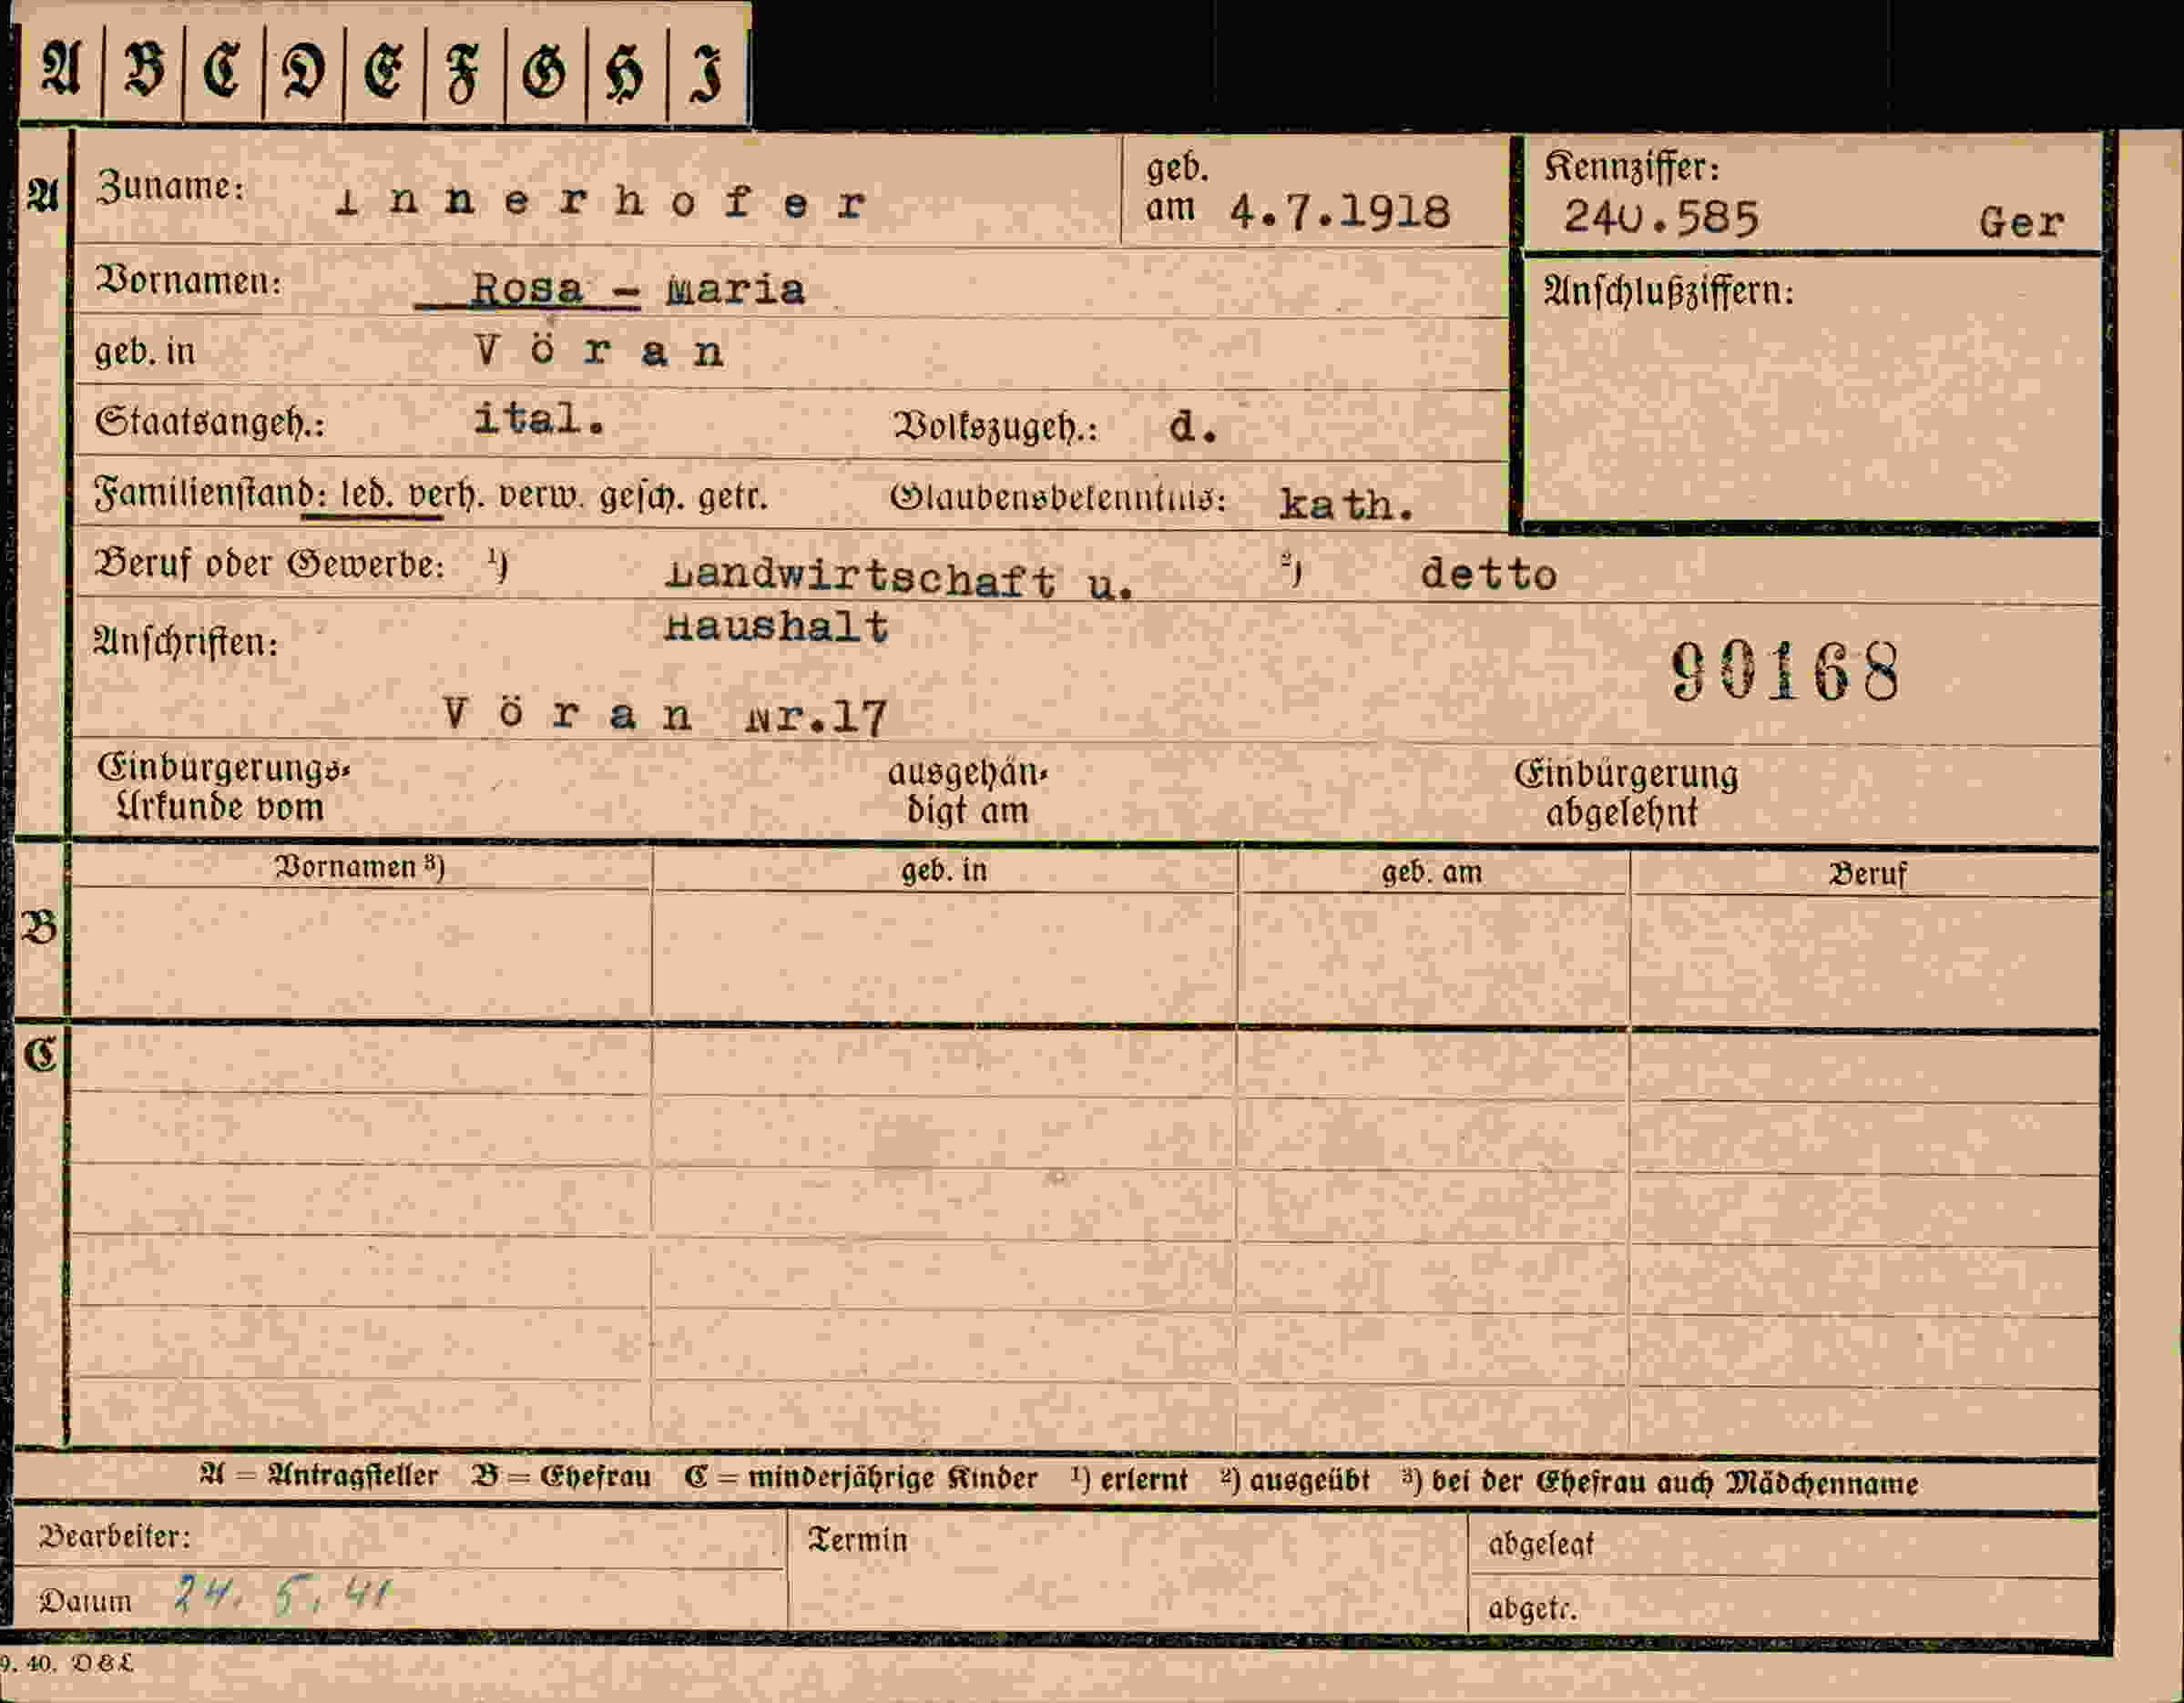 A B C D E F G H I
A Zuname: Innerhofer geb. am 4.7.1918 Kennziffer: 240.585 Ger
Vornamen: Rosa - Maria Anschlußziffern:
geb. in Vöran
Staatsangeh.: ital. Volkszugeh.: d.
Familienstand: led. verh. verw. gesch. getr. Glaubensbekenntnis: kath.
Beruf oder Gewerbe: 1) Landwirtschaft u. 2) detto
Haushalt
Anschriften: 90168
Vöran Nr.17
Einbürgerungs- ausgehän- Einbürgerung
Urkunde vom digt am abgelehnt
Vornamen 3) geb. in geb. am Beruf
B
C
A = Antragsteller B = Ehefrau C = minderjährige Kinder 1) erlernt 2) ausgeübt 3) bei der Ehefrau auch Mädchenname
Bearbeiter: Termin abgelegt
Datum 24. 5. 41 abgetr.
9. 40. D & L